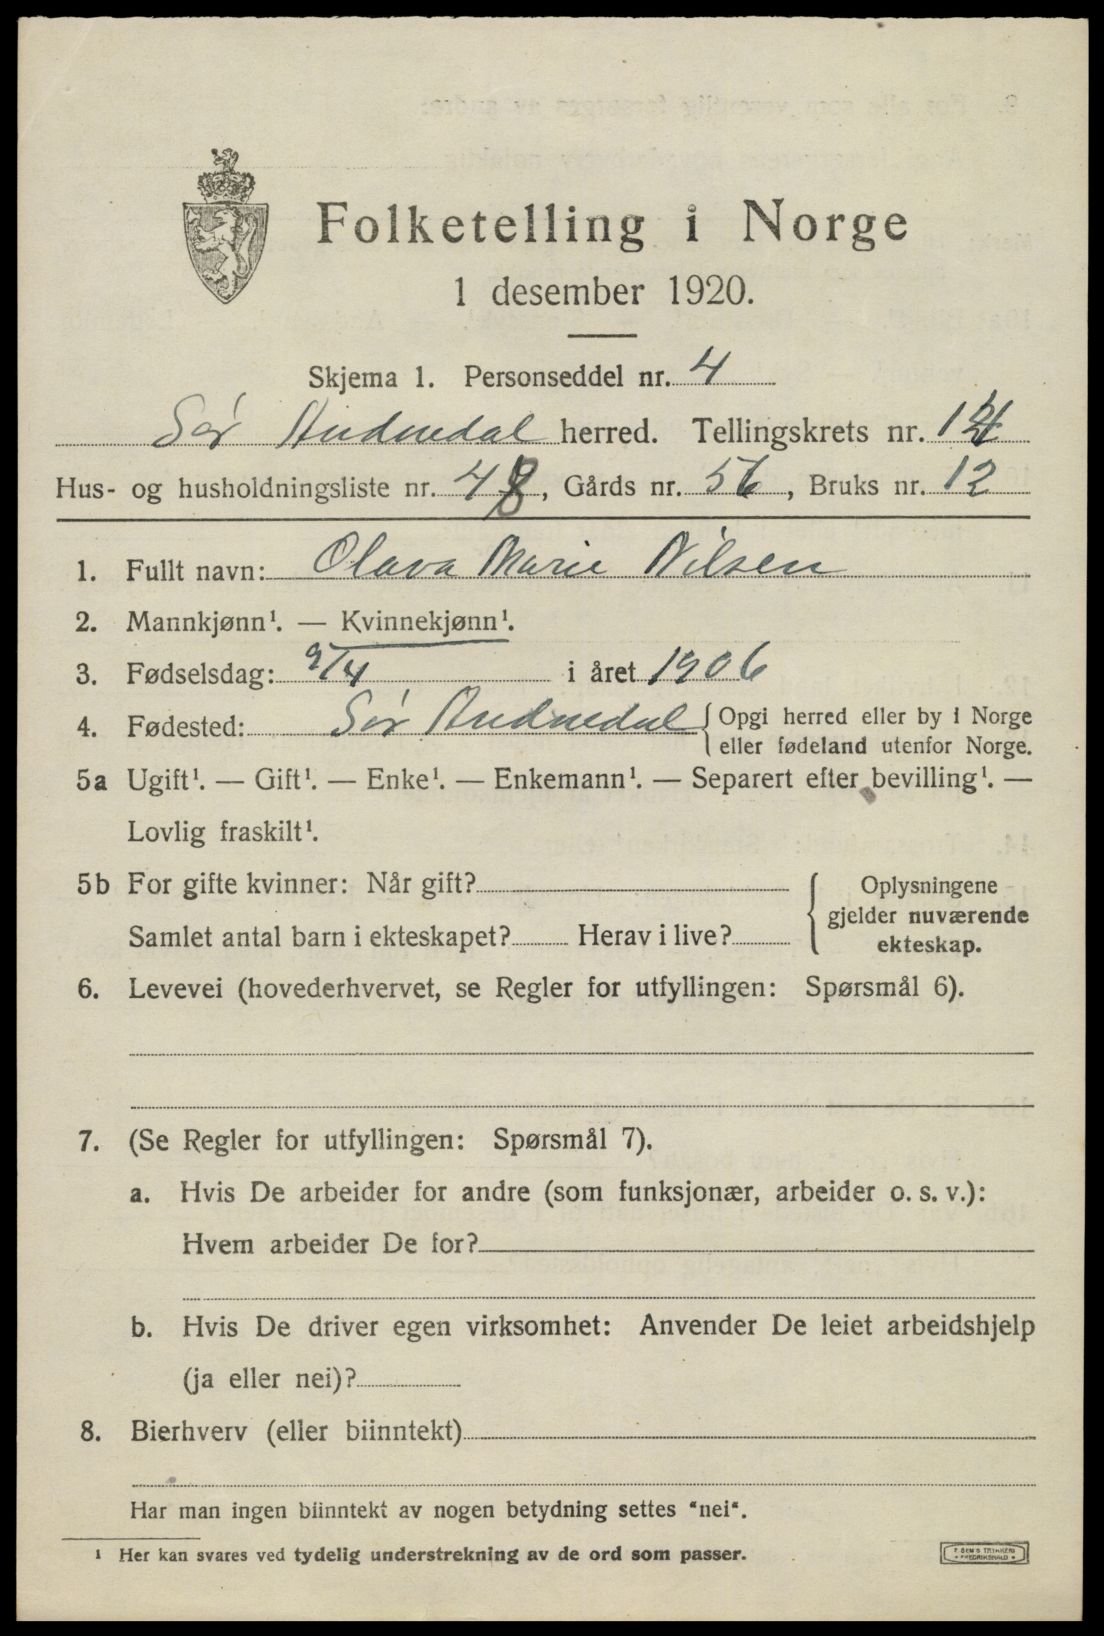 Folketelling i Norge
1 desember 1920.
Skjema 1. Personseddel nr. 4
Sør Audnedal herred. Tellingskrets nr. 14
Hus- og husholdningsliste nr. 48, Gårds nr. 56, Bruks nr. 12
1. Fullt navn: Olava Marie Nilsen
2. Mannkjønn¹. — Kvinnekjønn¹.
3. Fødselsdag: 9/4 i året 1906
4. Fødested: Sør Audnedal {Opgi herred eller by i Norge
eller fødeland utenfor Norge.
5a Ugift¹. — Gift¹. — Enke¹. — Enkemann¹. — Separert efter bevilling¹. —
Lovlig fraskilt¹.
5b For gifte kvinner: Når gift?
Samlet antal barn i ekteskapet? Herav i live?
{ Oplysningene
gjelder nuværende
ekteskap.
6. Levevei (hovederhvervet, se Regler for utfyllingen: Spørsmål 6).
7. (Se Regler for utfyllingen: Spørsmål 7).
a. Hvis De arbeider for andre (som funksjonær, arbeider o. s. v.):
Hvem arbeider De for?
b. Hvis De driver egen virksomhet: Anvender De leiet arbeidshjelp
(ja eller nei)?
8. Bierhverv (eller biinntekt)
Har man ingen biinntekt av nogen betydning settes "nei".
¹ Her kan svares ved tydelig understrekning av de ord som passer.
FREDRIKSHALD